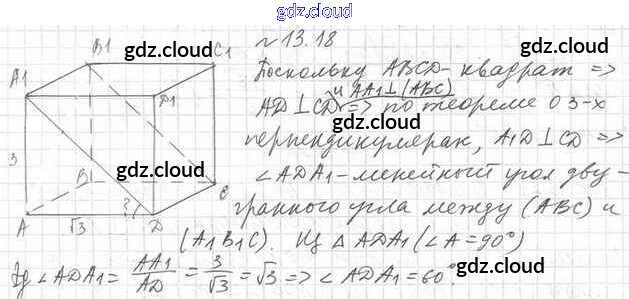 gdz.cloud
№13.18
Поскольку ABCD-квадрат =>
и AA1⊥(ABC)
AD⊥CD => по теореме о 3-х
перпендикулярах, A1D⊥CD =>
∠ADA1-линейный угол дву-
гранного угла между (ABC) и
(A1B1C). Из △ADA1 (∠A=90°)
Tg ∠ADA1 = AA1/AD = 3/√3 = √3 => ∠ADA1=60°.
B1
C1
gdz.cloud
gdz.cloud
A1
D1
gdz.cloud
gdz.cloud
3
B1
C
gdz.cloud
gdz.cloud
?
A
√3
D
gdz.cloud